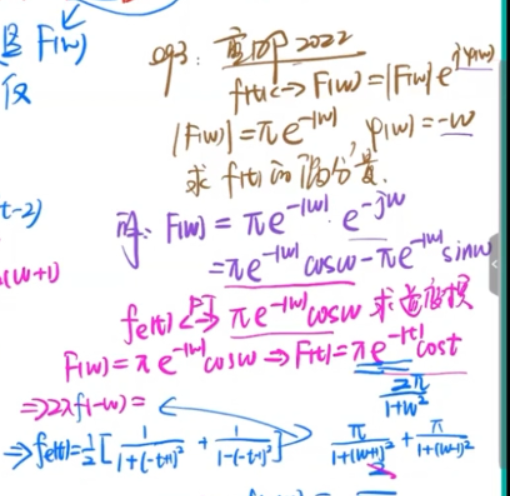 F(w)
仅
t-2)
(w+1)
例3: 2022
f(t)<->F(w)=|F(w)|e^{jφ(w)}
|F(w)|=πe^{-|w|}, φ(w)=-w
求 f(t) 的偶分量.
解: F(w)=πe^{-|w|}·e^{-jw}
=πe^{-|w|}cosw-πe^{-|w|}sinw
fe(t)<-FT->πe^{-|w|}cosw 求逆变换
F(w)=πe^{-|w|}cosw⇒F(t)=πe^{-|t|}cost
2π/(1+w²)
⇒2πf(-w)=
π/(1+(w+1)²)+π/(1+(w-1)²)
⇒fe(t)=½[1/(1+(-t+1)²)+1/(1-(-t-1)²)]